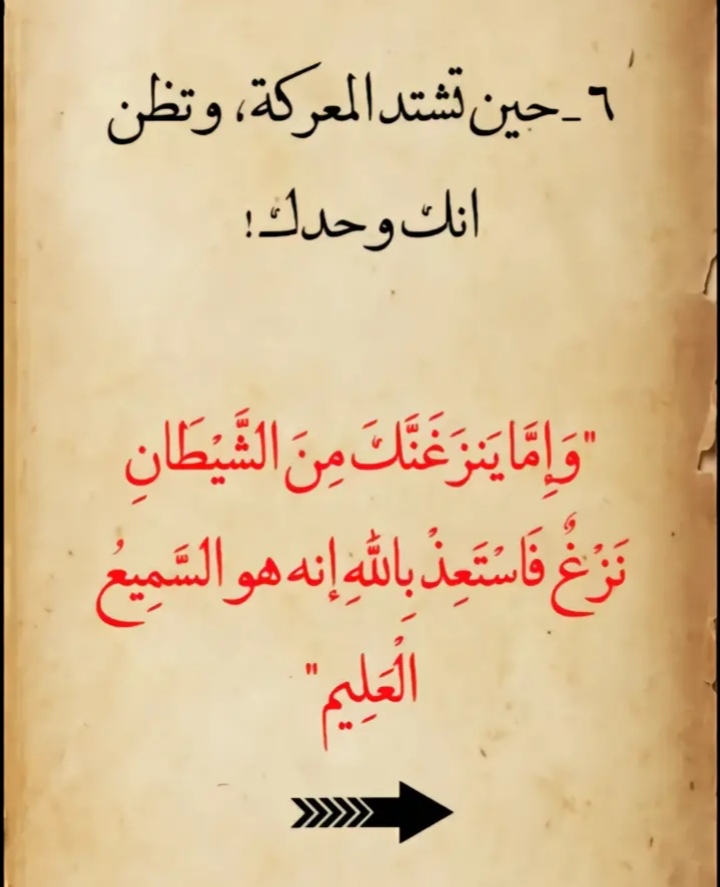 ٦_حين تشتد المعركة، وتظن
انك وحدك!
"وَإِمَّا يَنزَغَنَّكَ مِنَ الشَّيْطَانِ
نَزْغٌ فَاسْتَعِذْ بِاللَّهِ إنه هو السَّمِيعُ
الْعَلِيم"